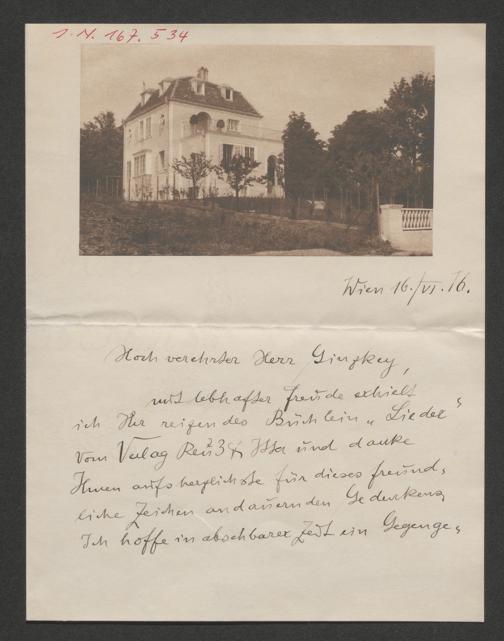 I.N. 167.534
Wien 16./VI. 16.
Hoch verehrter Herr Ginzkey,
mit lebhafter Freude erhielt
ich Ihr reizendes Büchlein „Lieder“
vom Verlag und danke
Ihnen aufs herzlichste für dieses freund„
liche Zeichen andauernden Gedenkens,
Ich hoffe in absehbarer Zeit ein Gegenge„